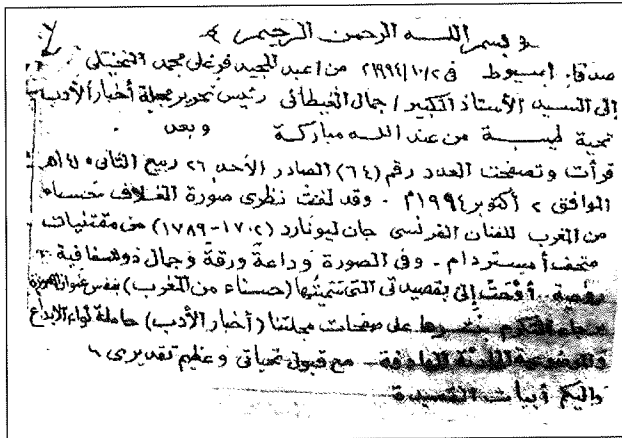 بسم الله الرحمن الرحيم
صدفا، أسيوط في ١٩٩٤/١٠/٢ من / عبد المجيد فرغلي محمد النخيلي
إلى السيد الأستاذ الكبير / جمال الغيطاني رئيس تحرير مجلة أخبار الأدب
تحية طيبة من عند الله مباركة وبعد .
قرأت وتصفحت العدد رقم (٦٤) الصادر الأحد ٢٦ ربيع الثاني ١٤١٥هـ
الموافق ٢ أكتوبر ١٩٩٤م . وقد لفت نظري صورة الغلاف حسناء
من المغرب للفنان الفرنسي جان ليونارد (١٧٠٢-١٧٨٩) من مقتنيات
متحف أمستردام . وفي الصورة وداعة ورقة وجمال ذو شفافية
أوحت إلى بقصيدتي التي (حسناء من المغرب) بنفس عنوان الصورة
على صفحات مجلتنا (أخبار الأدب) حاملة لواء الإبداع
مع قبول تحياتي وعظيم تقديري
وإليكم أبيات القصيدة